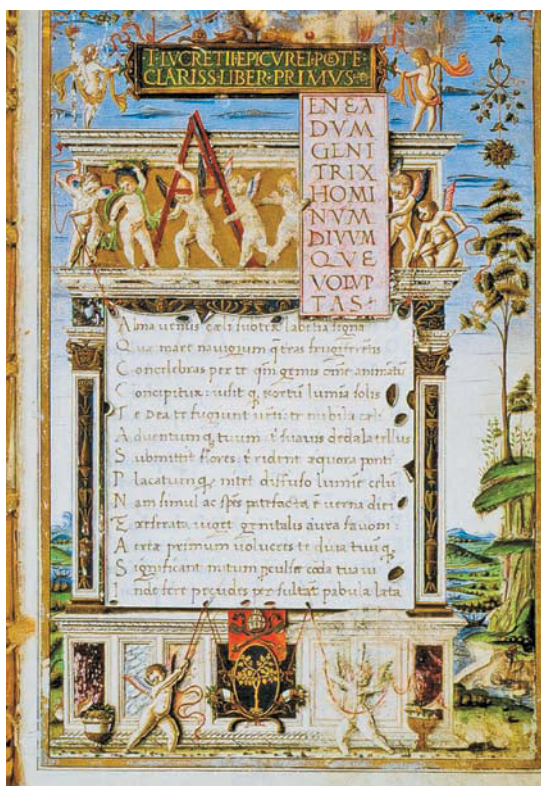 T·LVCRETII·EPICVREI·POTE·
CLARISS·LIBER·PRIMVS·
A
ENEA
DVM
GENI
TRIX
HOMI
NVM
DIVVM
QVE
VOLVP
TAS
Alma uenus cæli labētia signa
Quæ mare nauigium q̄ tras frugiferēis
Concelebras per te qm̄ genus ōme animātū
Concipitur: uisit q̨ exortū lumia solis
Te Dea te fugiunt uēti: te nubila cæli
Aduentumq̨ tuum: t̄ suauis dedala tellus
Submittit flores: t̄ rident æquora ponti
Placatumq̨ nitet diffuso lumīe celū
Nam simul ac spēs patefacta ē uerna diei
Et reserata uiget genitalis aura fauoni:
Aereæ primum uolucres te diua tuūq̨
Significant initum ꝑculsæ corda tua ui
Inde feræ pecudes per sultāt pabula læta